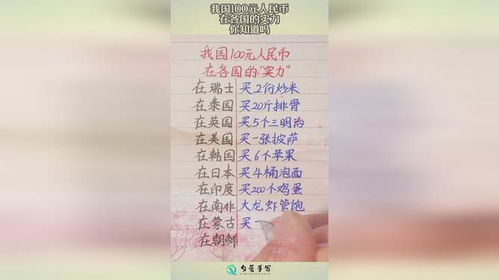 我国100元人民币
在各国的实力
你知道吗
我国100元人民币
在各国的"实力"
在瑞士 买2份炒米
在泰国 买20斤排骨
在英国 买5个三明治
在美国 买一张披萨
在韩国 买6个苹果
在日本 买4桶泡面
在印度 买200个鸡蛋
在南非 大龙虾管饱
在蒙古 买一
在朝鲜